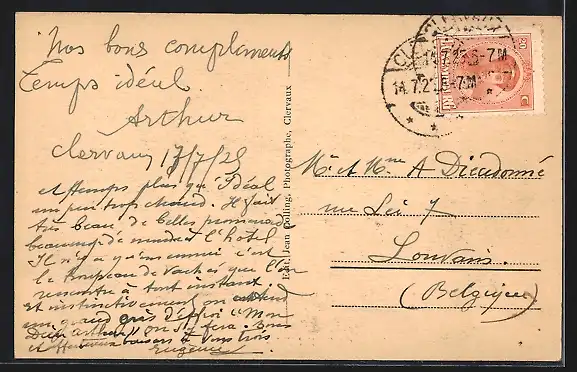 Nos bons compliments
Temps idéal
Arthur
Clervaux 17/7/25
et temps plus qu'Idéal
un peu trop chaud. Il fait
très beau de belles promenades
beaucoup de monde à l'hôtel
Il n'y a qu'un ennui c'est
le troupeau de vaches que l'on
rencontre à tout instant.
Et instinctivement on
un grand d'effroi "Mon
Dieu Arthur" on s'y fera. Bons
et baisers à vous trois
Eugénie
Edit. Jean Nolling, Photographe, Clervaux
CLERVAUX
14.7.25.6-7M
14.7.25.6-7M
30
Mr et Mme A Dieudonné
rue Léi 7
Louvain.
(Belgique)